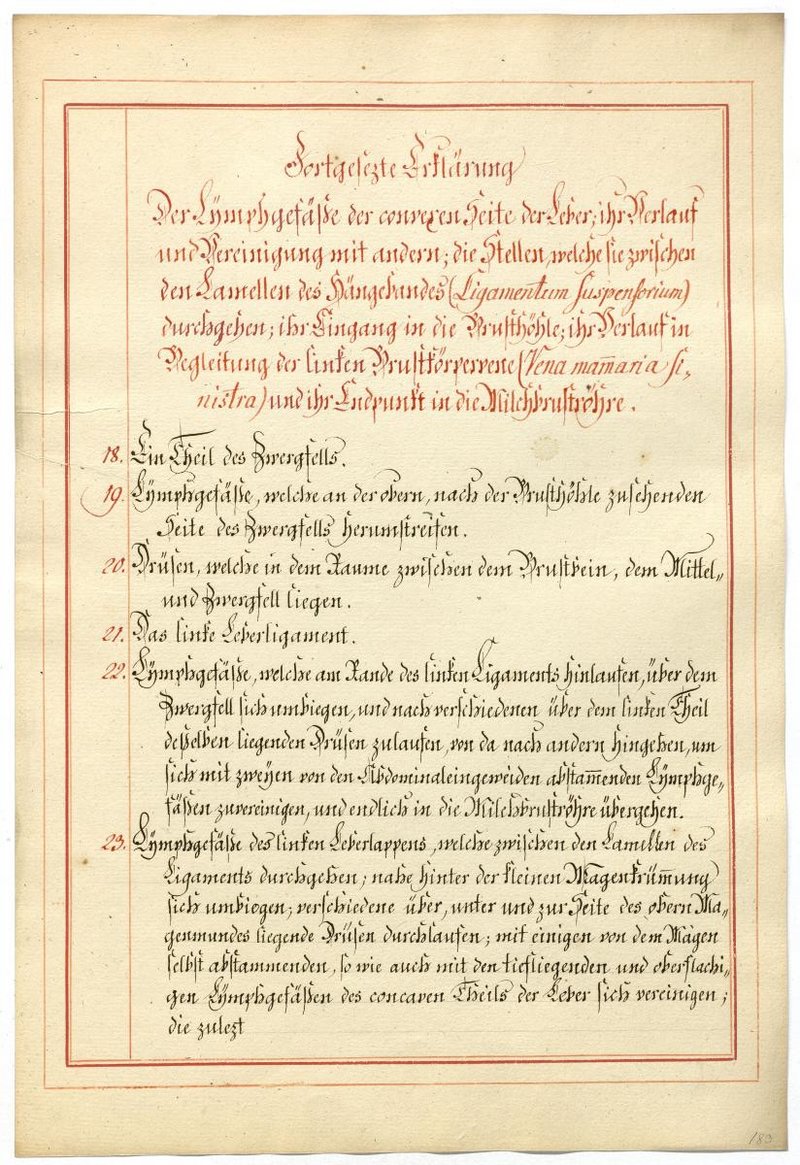 Fortgesezte Erklärung
Der Lÿmphgefäße der convexen Seite der Leber; ihr Verlauf
und Vereinigung mit andern; die Stellen, welche sie zwischen
den Lamellen des Hängebandes (Ligamentum suspensorium)
durchgehen; ihr Eingang in die Brusthöhle; ihr Verlauf in
Begleitung der linken Brustkörpervene (Vena mam̄aria si-
nistra) und ihr Endpunkt in die Milchbruströhre.
18. Ein Theil des Zwergfells.
19. Lÿmphgefäße, welche an der obern, nach der Brusthöhle zusehenden
Seite des Zwergfells herumstreifen.
20. Drüsen, welche in dem Raume zwischen dem Brustbein, dem Mittel-
und Zwergfell liegen.
21. Das linke Leberligament.
22. Lÿmphgefäße, welche am Rande des linken Ligaments hinlaufen, über dem
Zwergfell sich umbiegen, und nach verschiedenen über dem linken Theil
deßelben liegenden Drüsen zulaufen, von da nach andern hingehen, um
sich mit zweyen von den Abdominaleingeweiden abstam̄enden Lÿmphge-
fäßen zuvereinigen, und endlich in die Milchbruströhre übergehen.
23. Lÿmphgefäße des linken Leberlappens, welche zwischen den Lamellen des
Ligaments durchgehen; nahe hinter der kleinen Magenkrüm̄ung
sich umbiegen; verschiedene über, unter und zur Seite des obern Ma-
genmundes liegende Drüsen durchlaufen; mit einigen von dem Magen
selbst abstammenden, so wie auch mit den tiefliegenden und oberflachi-
gen Lÿmphgefäßen des concaven Theils der Leber sich vereinigen;
die zulezt
189